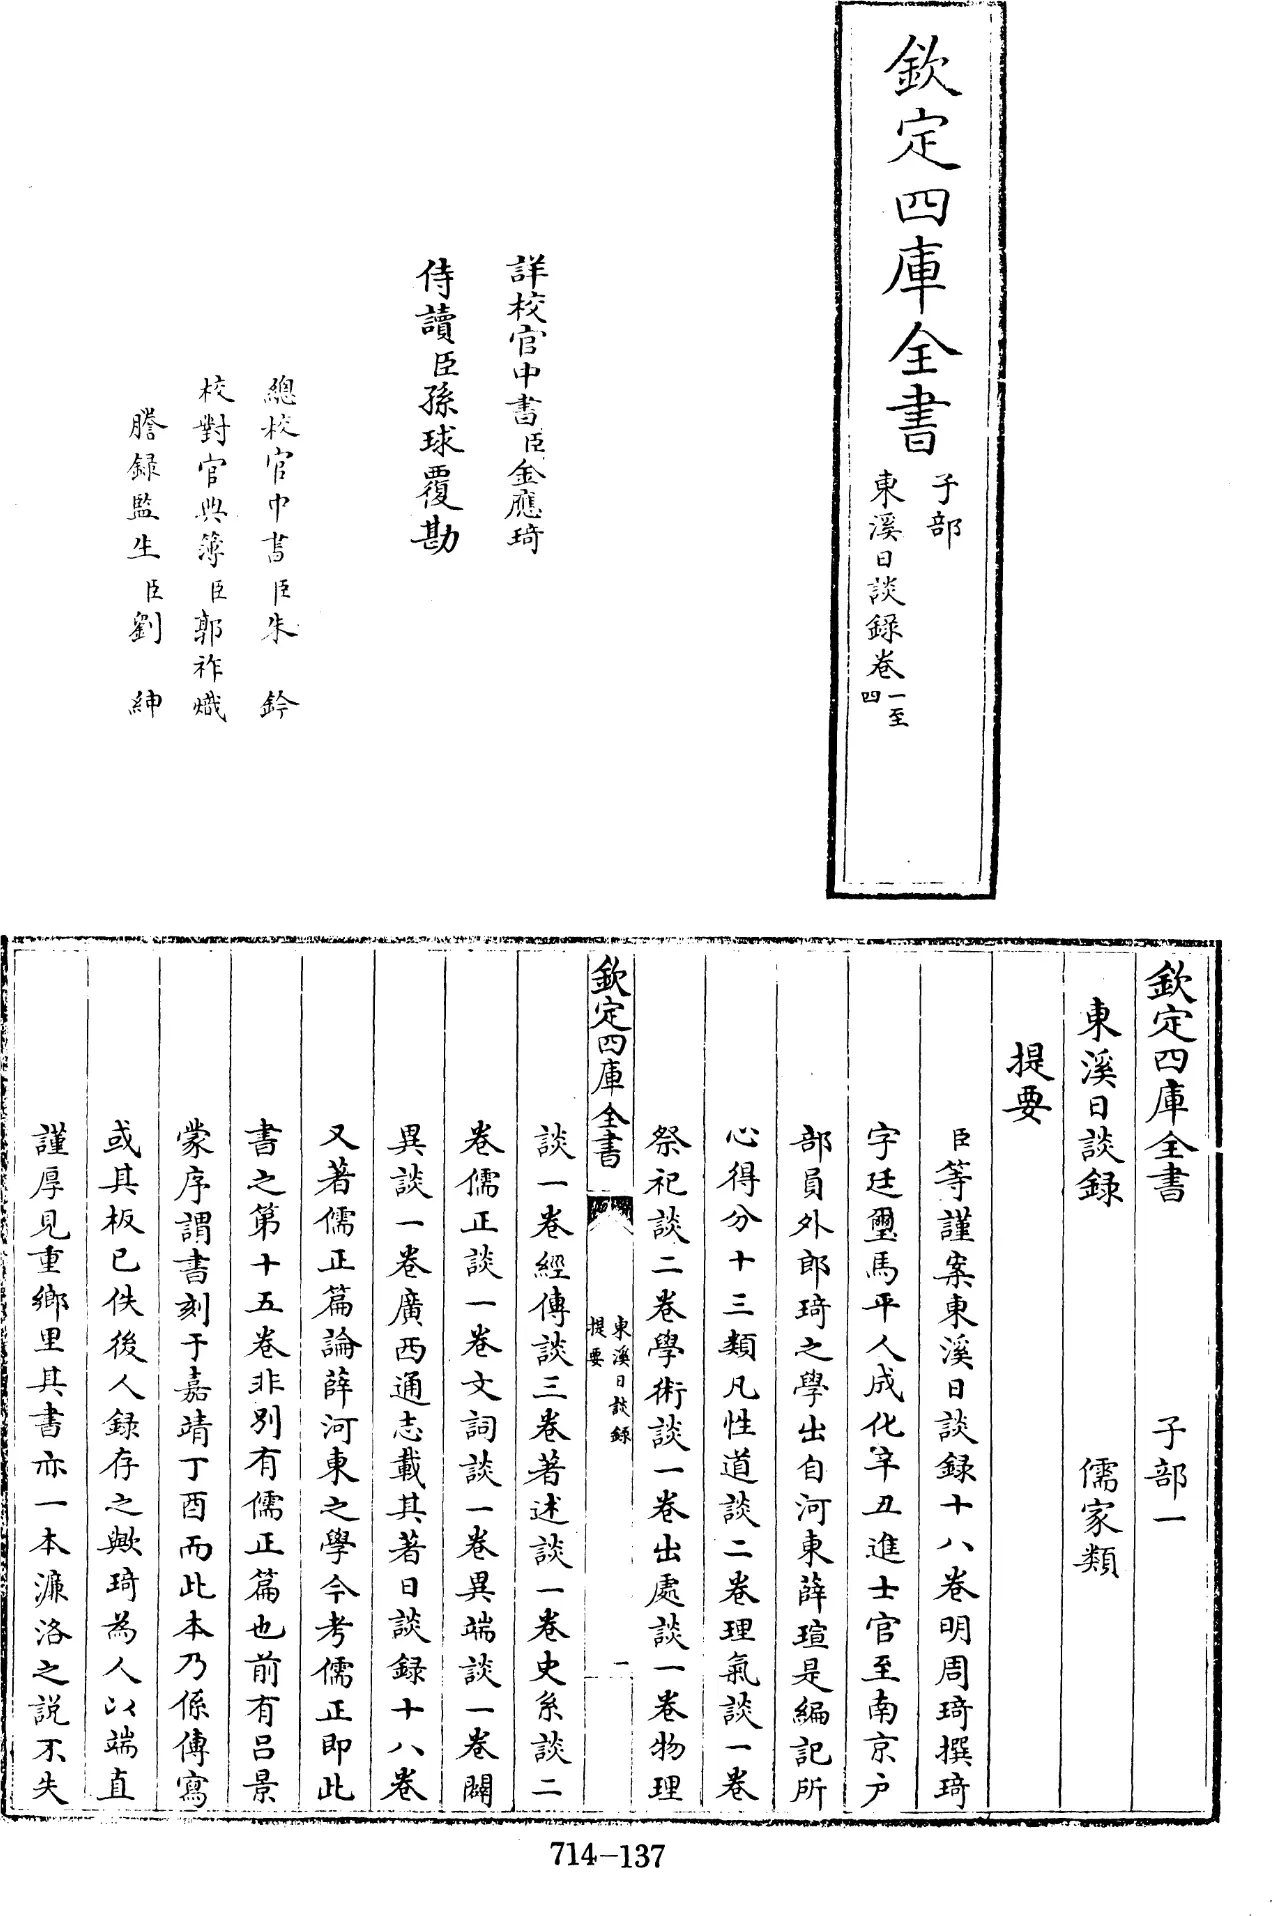 欽定四庫全書
子部
東溪日談録卷一至四
詳校官中書臣金應琦
侍讀臣孫球覆勘
總校官中書臣朱鈐
校對官典簿臣郭祚熾
謄録監生臣劉紳
欽定四庫全書 子部一
東溪日談録 儒家類
提要
臣等謹案東溪日談録十八卷明周琦撰琦
字廷璽馬平人成化辛丑進士官至南京户
部員外郎琦之學出自河東薛瑄是編記所
心得分十三類凡性道談二卷理氣談一卷
祭祀談二卷學術談一卷出處談一卷物理
欽定四庫全書
東溪日談録
提要
一
談一卷經傳談三卷著述談一卷史系談二
卷儒正談一卷文詞談一卷異端談一卷闢
異談一卷廣西通志載其著日談録十八卷
又著儒正篇論薛河東之學今考儒正即此
書之第十五卷非别有儒正篇也前有吕景
蒙序謂書刻于嘉靖丁酉而此本乃係傳寫
或其板已佚後人録存之歟琦為人以端直
謹厚見重鄉里其書亦一本濂洛之説不失
714-137